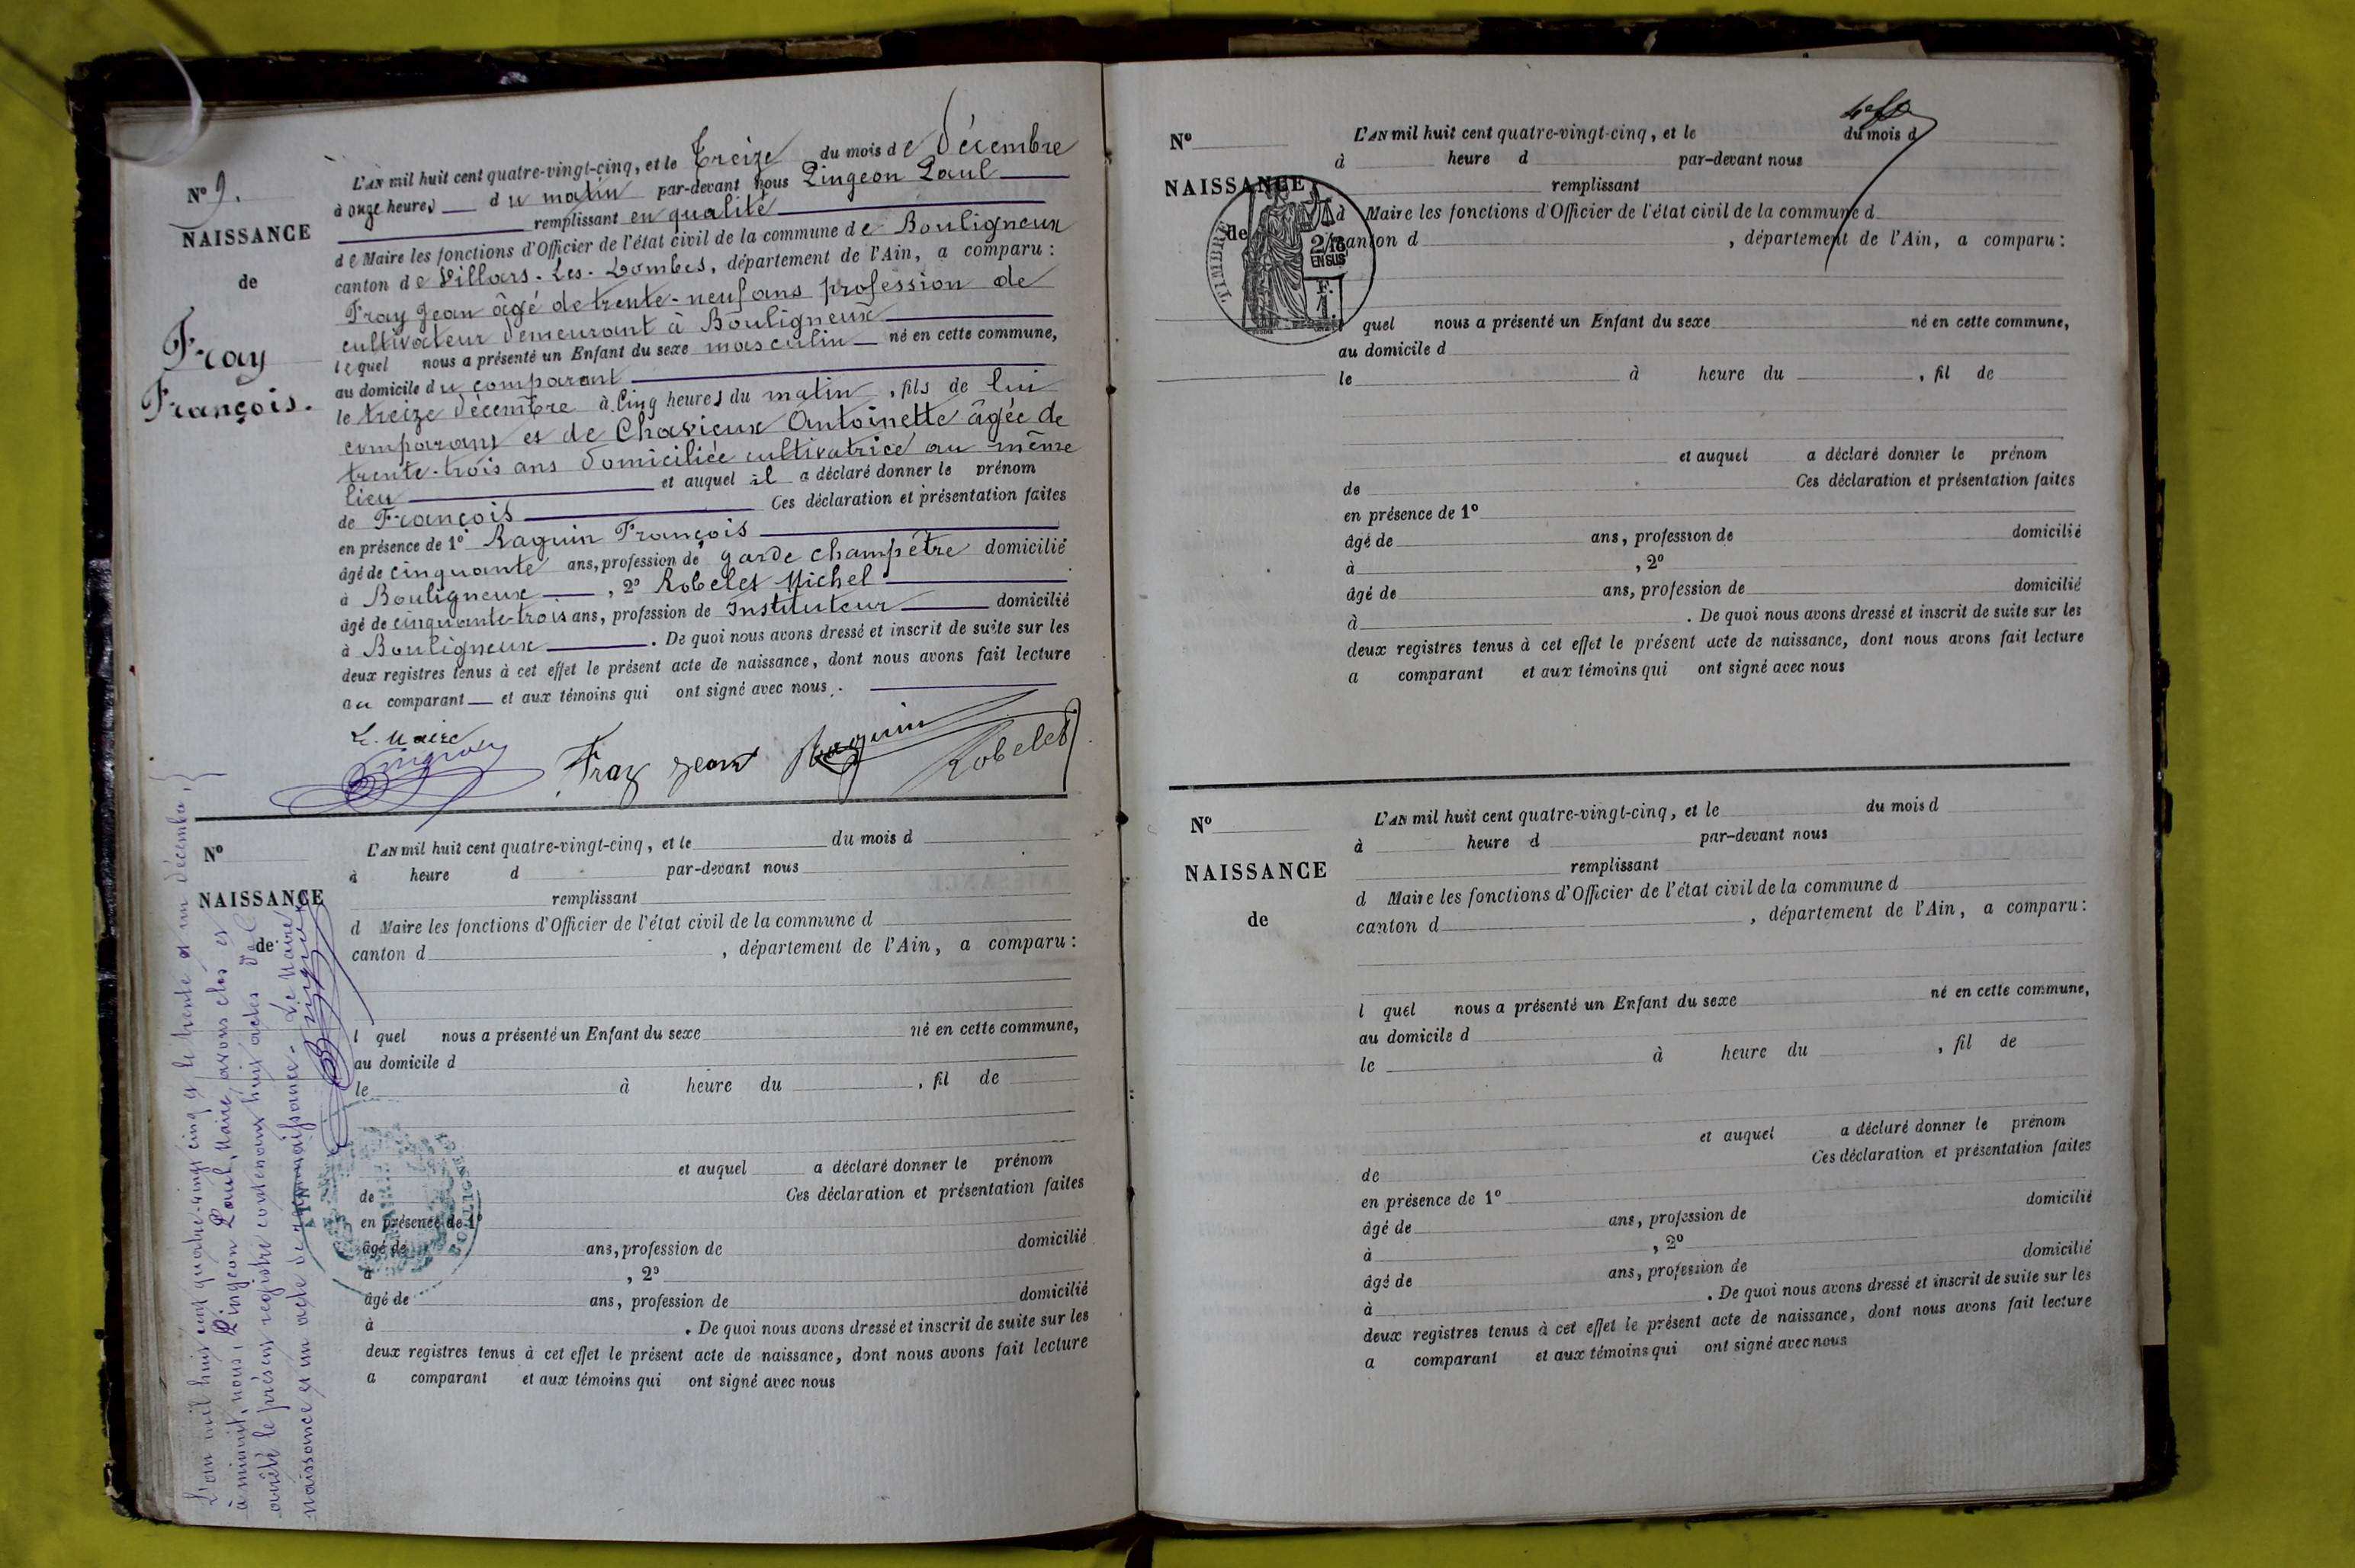 N° 9.
NAISSANCE
de
Fray
François.
L'AN mil huit cent quatre-vingt-cinq, et le treize du mois de Décembre
à onze heures du matin par-devant nous Pingeon Paul
remplissant en qualité
de Maire les fonctions d'Officier de l'état civil de la commune de Bouligneux
canton de Villars-Les-Dombes, département de l'Ain, a comparu :
Fray Jean âgé de trente-neuf ans profession de
cultivateur demeurant à Bouligneux
lequel nous a présenté un Enfant du sexe masculin né en cette commune,
au domicile du comparant
le treize décembre à cinq heures du matin, fils de lui
comparant et de Chavieux Antoinette âgée de
trente-trois ans domiciliée cultivatrice au même
lieu et auquel il a déclaré donner le prénom
de François Ces déclaration et présentation faites
en présence de 1° Raguin François
âgé de cinquante ans, profession de garde champêtre domicilié
à Bouligneux, 2° Robelet Michel
âgé de cinquante-trois ans, profession de Instituteur domicilié
à Bouligneux. De quoi nous avons dressé et inscrit de suite sur les
deux registres tenus à cet effet le présent acte de naissance, dont nous avons fait lecture
au comparant et aux témoins qui ont signé avec nous.
Le Maire
Pingeon Fray Jean Raguin Robelet
N°
NAISSANCE
de
L'AN mil huit cent quatre-vingt-cinq, et le du mois d
à heure d par-devant nous
remplissant
d Maire les fonctions d'Officier de l'état civil de la commune d
canton d , département de l'Ain, a comparu :
l quel nous a présenté un Enfant du sexe né en cette commune,
au domicile d
le à heure du , fil de
et auquel a déclaré donner le prénom
de Ces déclaration et présentation faites
en présence de 1°
âgé de ans, profession de domicilié
à , 2°
âgé de ans, profession de domicilié
à . De quoi nous avons dressé et inscrit de suite sur les
deux registres tenus à cet effet le présent acte de naissance, dont nous avons fait lecture
a comparant et aux témoins qui ont signé avec nous
L'an mil huit cent quatre-vingt cinq et le trente et un décembre,
à minuit, nous, Pingeon Paul, Maire, avons clos et
arrêté le présent registre contenant huit actes de
naissance et un acte de reconnaissance. Le Maire
Pingeon
AIN
N°
NAISSANCE
de
L'AN mil huit cent quatre-vingt-cinq, et le du mois d
à heure d par-devant nous
remplissant
d Maire les fonctions d'Officier de l'état civil de la commune d
canton d , département de l'Ain, a comparu :
TIMBRE
2/10
EN SUS
F.
1.
quel nous a présenté un Enfant du sexe né en cette commune,
au domicile d
le à heure du , fil de
et auquel a déclaré donner le prénom
de Ces déclaration et présentation faites
en présence de 1°
âgé de ans, profession de domicilié
à , 2°
âgé de ans, profession de domicilié
à . De quoi nous avons dressé et inscrit de suite sur les
deux registres tenus à cet effet le présent acte de naissance, dont nous avons fait lecture
a comparant et aux témoins qui ont signé avec nous
N°
NAISSANCE
de
L'AN mil huit cent quatre-vingt-cinq, et le du mois d
à heure d par-devant nous
remplissant
d Maire les fonctions d'Officier de l'état civil de la commune d
canton d , département de l'Ain, a comparu :
l quel nous a présenté un Enfant du sexe né en cette commune,
au domicile d
le à heure du , fil de
et auquel a déclaré donner le prénom
de Ces déclaration et présentation faites
en présence de 1°
âgé de ans, profession de domicilié
à , 2°
âgé de ans, profession de domicilié
à . De quoi nous avons dressé et inscrit de suite sur les
deux registres tenus à cet effet le présent acte de naissance, dont nous avons fait lecture
a comparant et aux témoins qui ont signé avec nous